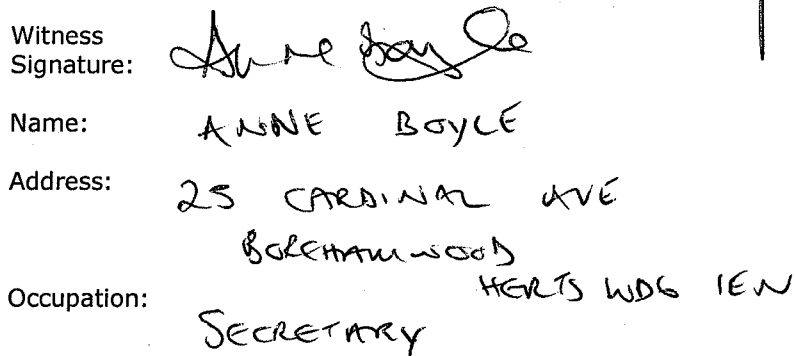 Witness
Signature: Anne Boyle
Name: ANNE BOYLE
Address: 25 CARDINAL AVE
BOREHAMWOOD
HERTS WD6 1EN
Occupation:
SECRETARY